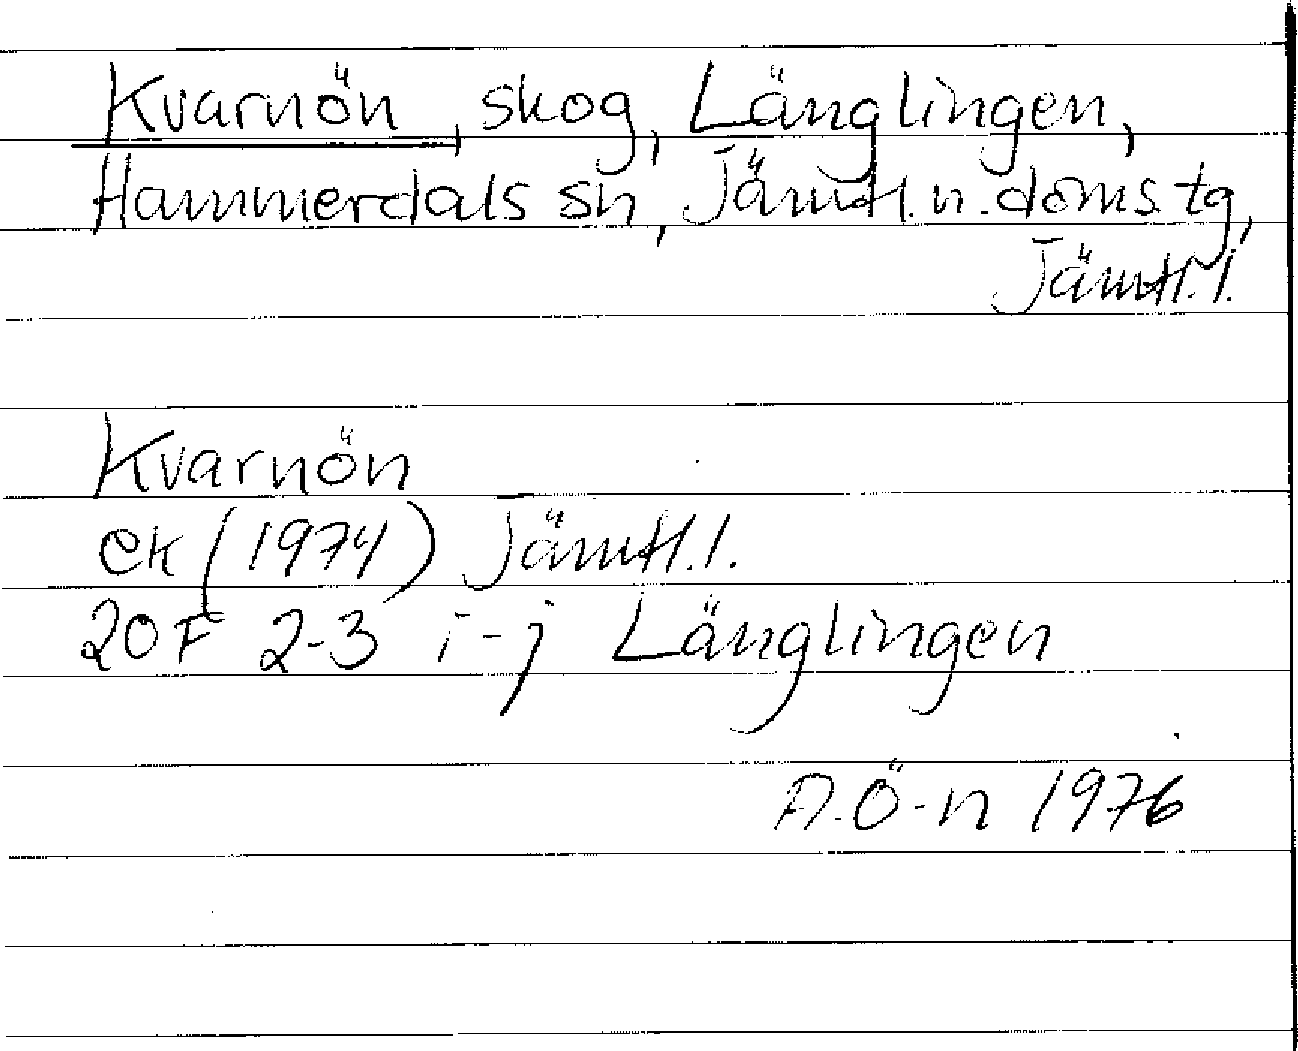 Kvarnön, skog, Länglingen,
Hammerdals sn, Jämtl. n. doms. tg,
Jämtl. l.
Kvarnön
ek (1974) Jämtl. l.
20F 2-3 i-j Länglingen
A. Ö-n 1976